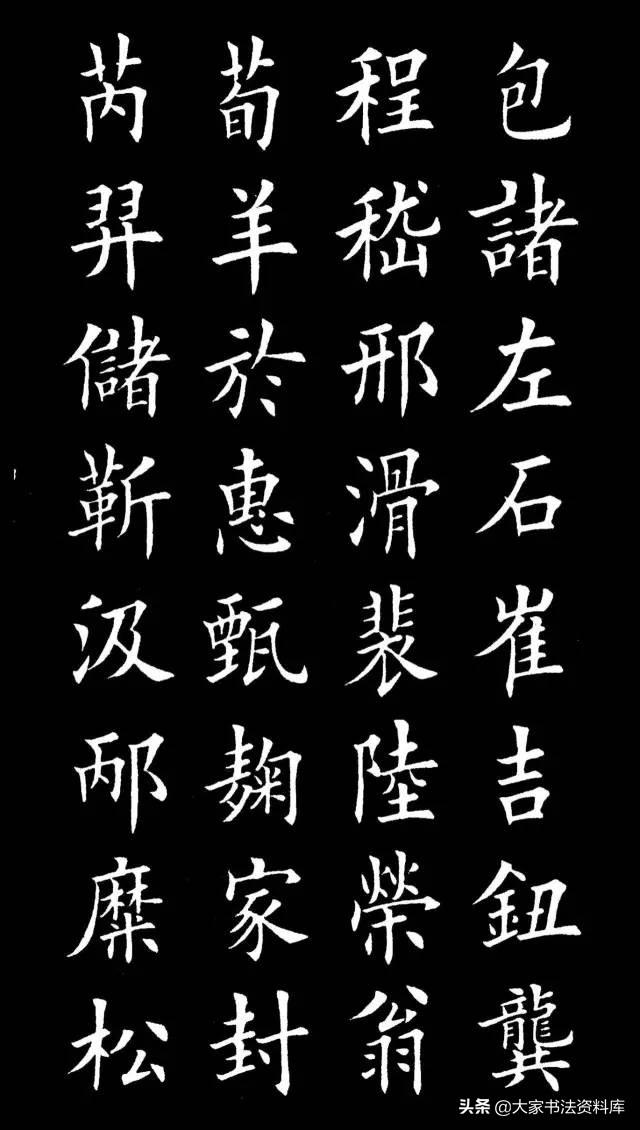 包諸左石崔吉鈕龔
程嵇邢滑裴陸榮翁
荀羊於惠甄麴家封
芮羿儲靳汲邴糜松
头条 @大家书法资料库